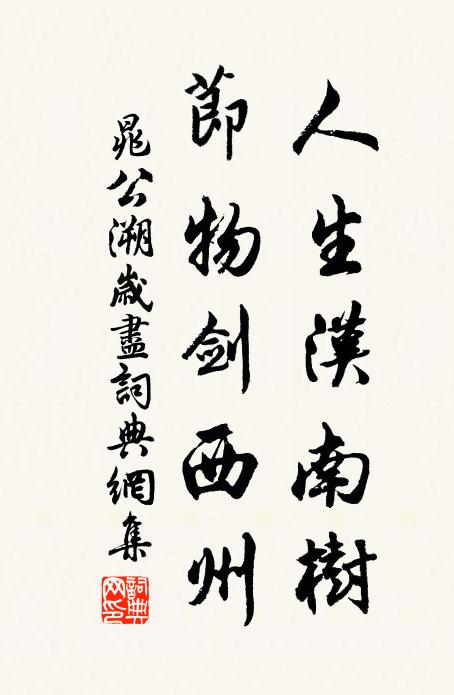 人生漢南樹
節物劍西州
晁公溯歲盡詞典網集
詞典網印